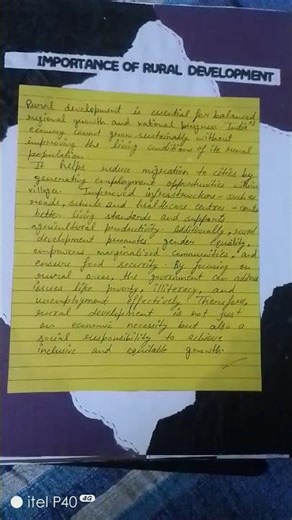 IMPORTANCE OF RURAL DEVELOPMENT
Rural development is essential for balanced
regional growth and national progress. India's
economy cannot grow sustainably without
improving the living conditions of its rural
population.
It helps reduce migration to cities by
generating employment opportunities within
villages. Improved infrastructure - such as
roads, schools and healthcare centres -
better living standards and supports
agricultural productivity. Additionally, rural
development promotes gender equality,
empowers marginalized communities, and
ensure food security. By focusing on
rural areas, the government can address
issues like poverty, illiteracy, and
unemployment effectively. Therefore,
rural development is not just
an economic necessity but also a
social responsibility to achieve
inclusive and equitable growth.
itel P40 4G